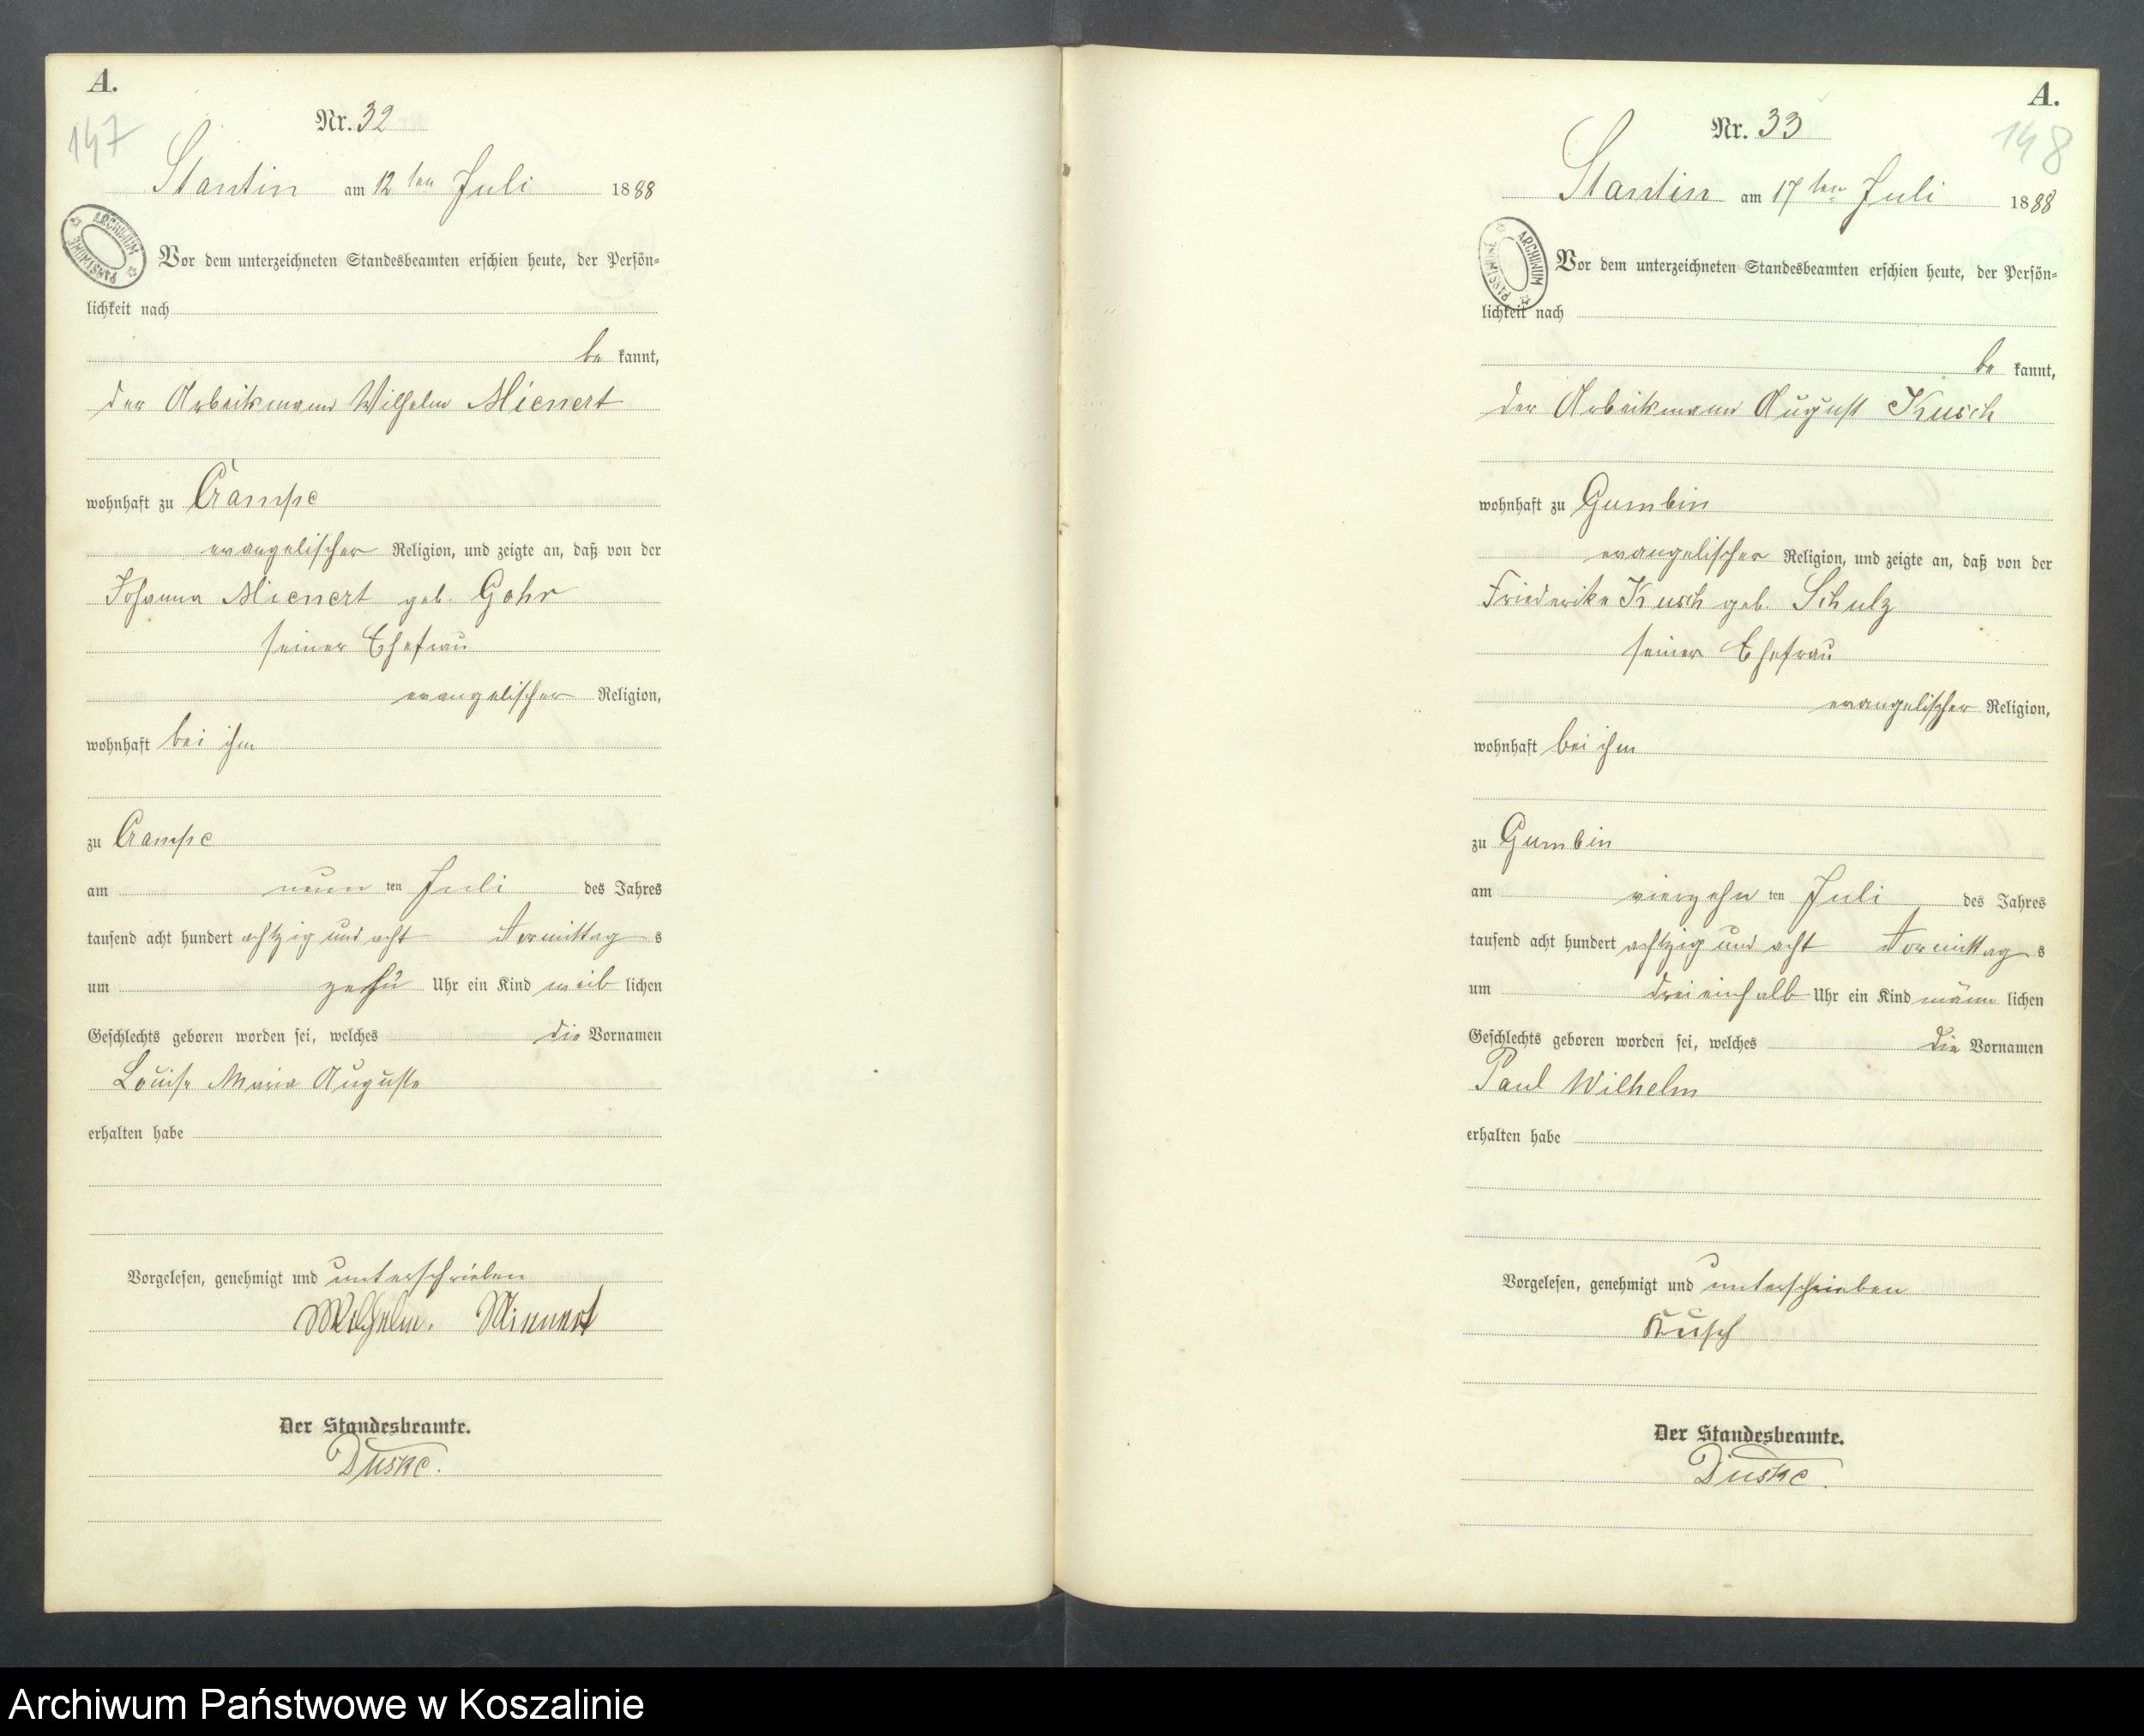 A.
147
Nr. 32
Stantin am 12 ten Juli 1888
ARCHIWUM PAŃSTWOWE
Vor dem unterzeichneten Standesbeamten erschien heute, der Persön=
lichkeit nach
be kannt,
der Arbeitsmann Wilhelm Mienert
wohnhaft zu Crampe
evangelischer Religion, und zeigte an, daß von der
Johanna Mienert geb. Gohr
seiner Ehefrau
evangelischer Religion,
wohnhaft bei ihm
zu Crampe
am neun ten Juli des Jahres
tausend acht hundert achtzig und acht Vormittag s
um zehn Uhr ein Kind weib lichen
Geschlechts geboren worden sei, welches die Vornamen
Louise Maria Auguste
erhalten habe
Vorgelesen, genehmigt und unterschrieben
Wilhelm. Minnert
Der Standesbeamte.
Duske.
A.
148
Nr. 33
Stantin am 17 ten Juli 1888
ARCHIWUM PAŃSTWOWE
Vor dem unterzeichneten Standesbeamten erschien heute, der Persön=
lichkeit nach
be kannt,
der Arbeitsmann August Kusch
wohnhaft zu Gumbin
evangelischer Religion, und zeigte an, daß von der
Friederike Kusch geb. Schulz
seiner Ehefrau
evangelischer Religion,
wohnhaft bei ihm
zu Gumbin
am vierzehn ten Juli des Jahres
tausend acht hundert achtzig und acht Vormittag s
um dreieinhalb Uhr ein Kind männ lichen
Geschlechts geboren worden sei, welches die Vornamen
Paul Wilhelm
erhalten habe
Vorgelesen, genehmigt und unterschrieben
Kusch
Der Standesbeamte.
Duske.
Archiwum Państwowe w Koszalinie